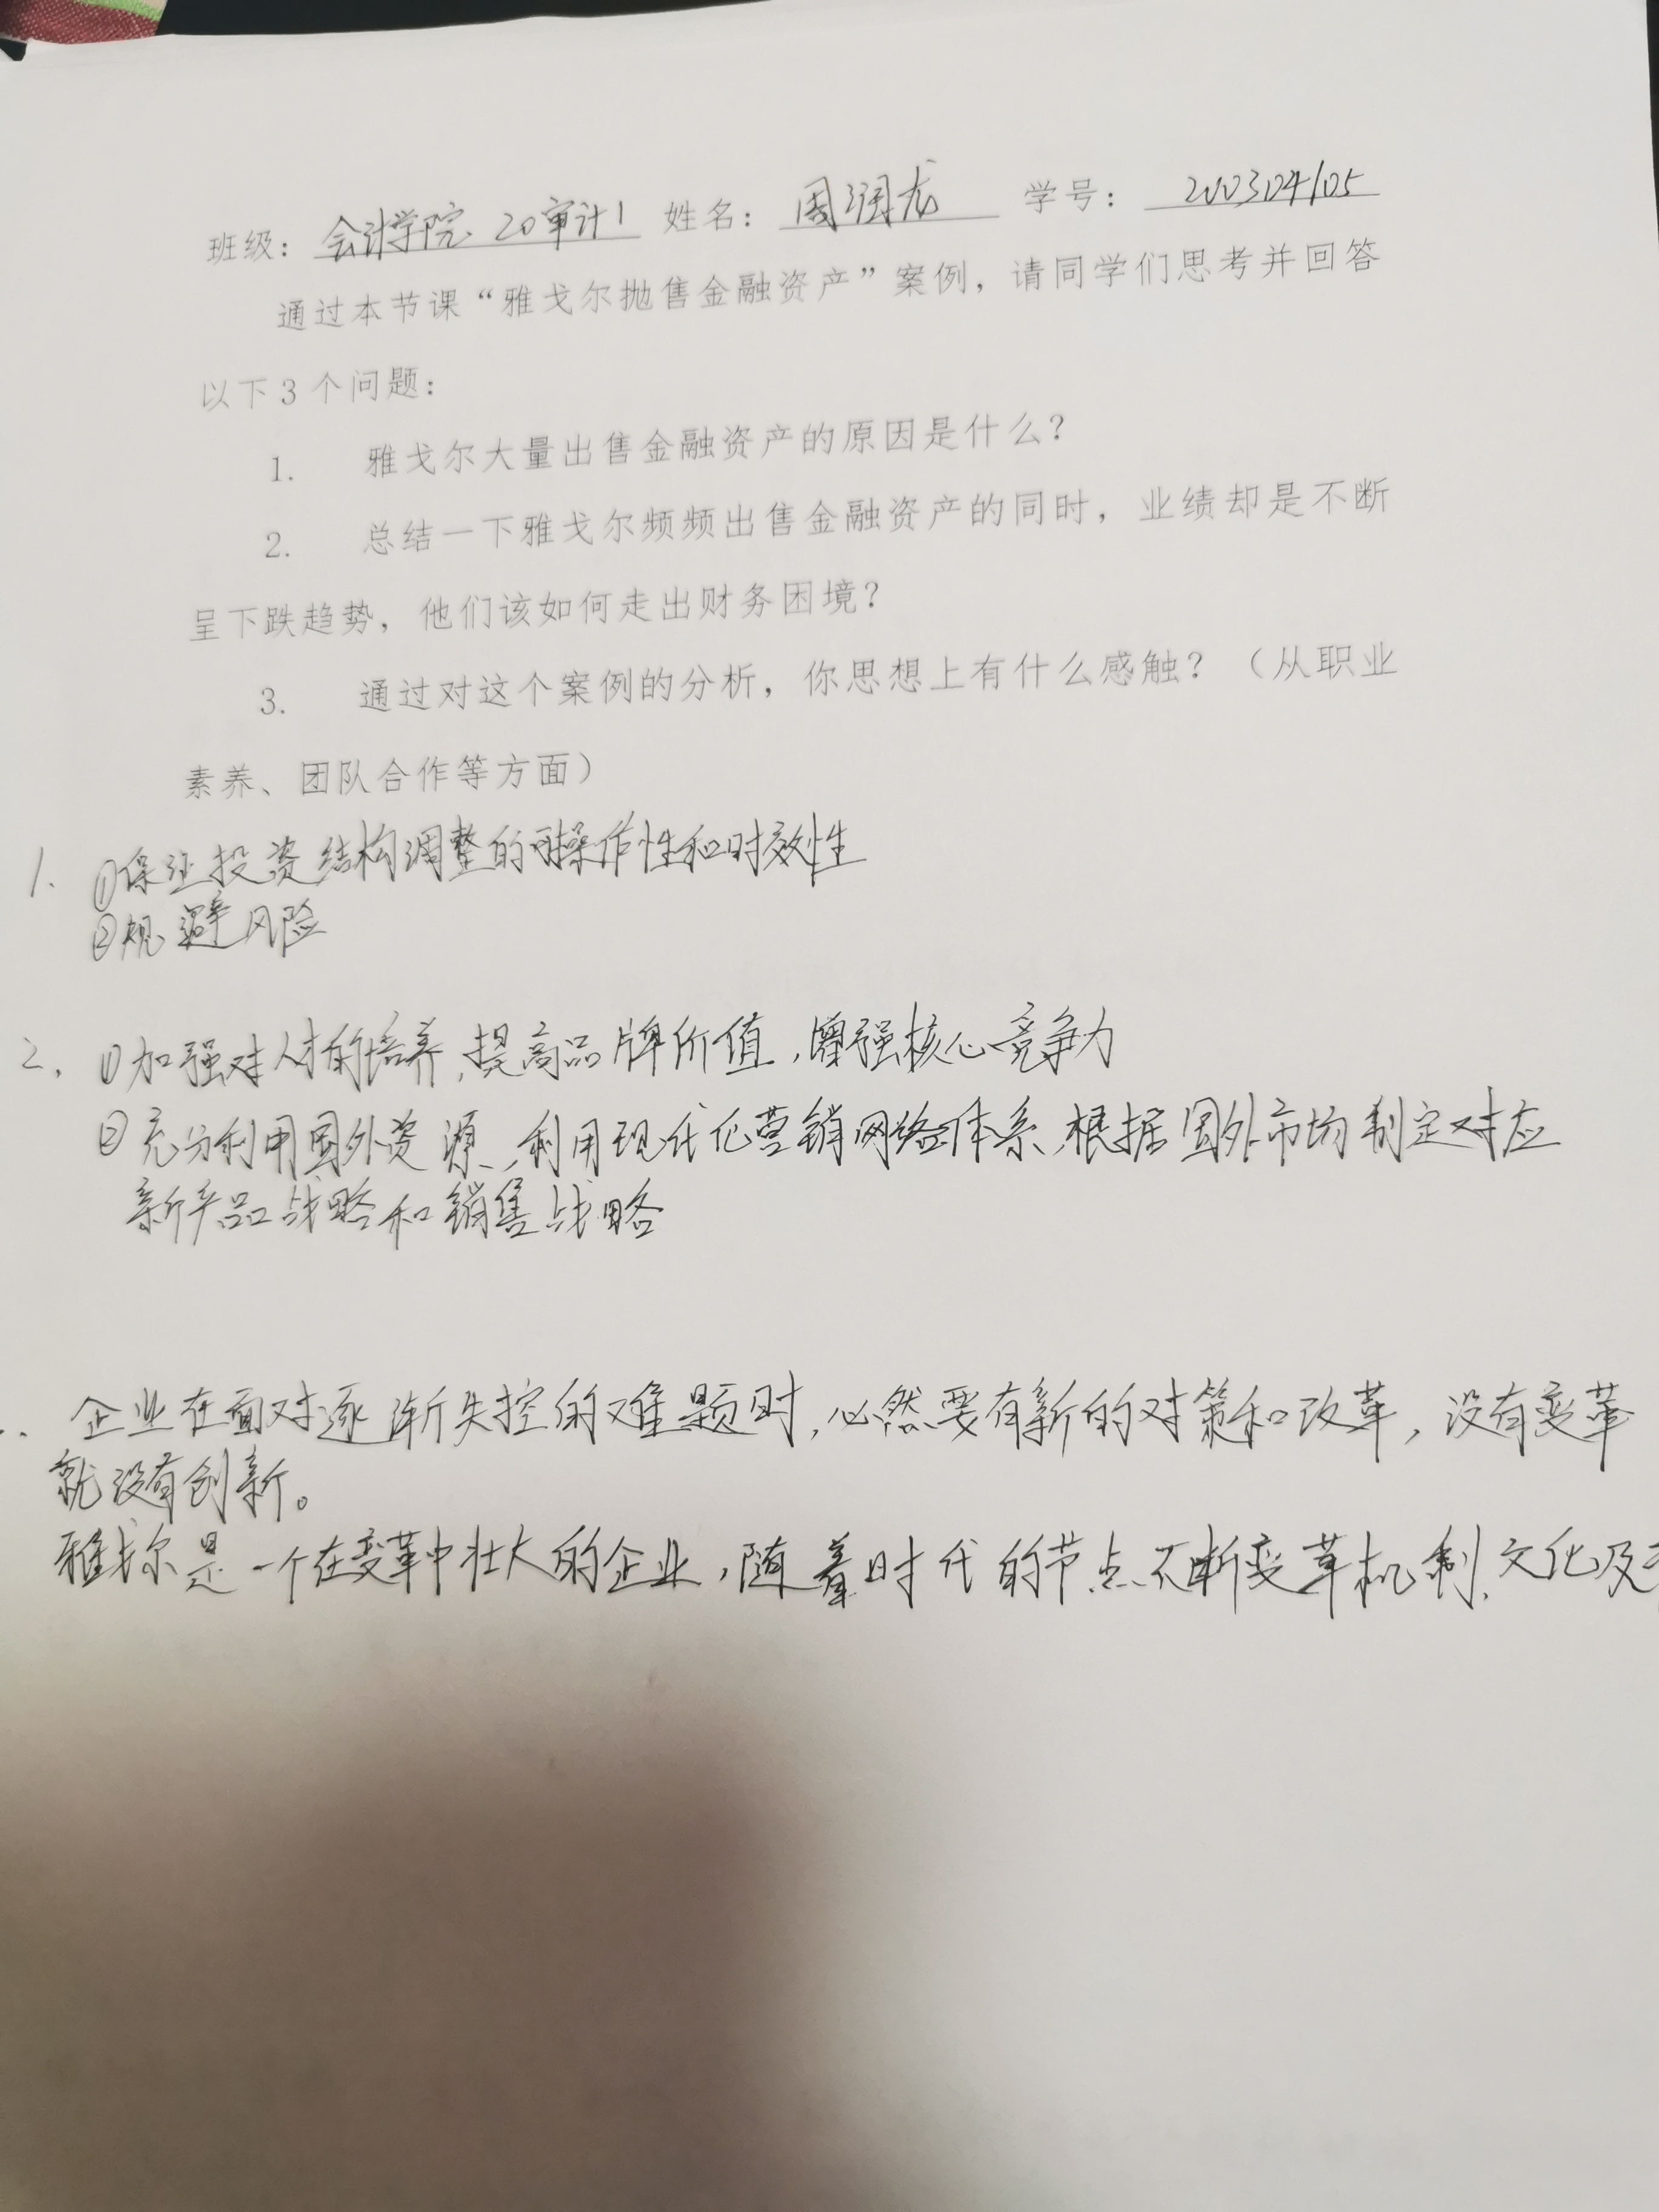 班级：会计学院 20审计1 姓名：周润龙 学号：200304105
通过本节课“雅戈尔抛售金融资产”案例，请同学们思考并回答
以下3个问题：
1. 雅戈尔大量出售金融资产的原因是什么？
2. 总结一下雅戈尔频频出售金融资产的同时，业绩却是不断
呈下跌趋势，他们该如何走出财务困境？
3. 通过对这个案例的分析，你思想上有什么感触？（从职业
素养、团队合作等方面）
1. ①保证投资结构调整的可操作性和时效性
②规避风险
2. ①加强对人才的培养，提高品牌价值，增强核心竞争力
②充分利用国外资源，利用现代化营销网络体系，根据国外市场制定对应
新产品战略和销售战略
企业在面对逐渐失控的难题时，必然要有新的对策和改革，没有变革
就没有创新。
雅戈尔是一个在变革中壮大的企业，随着时代的节点不断变革机制、文化及